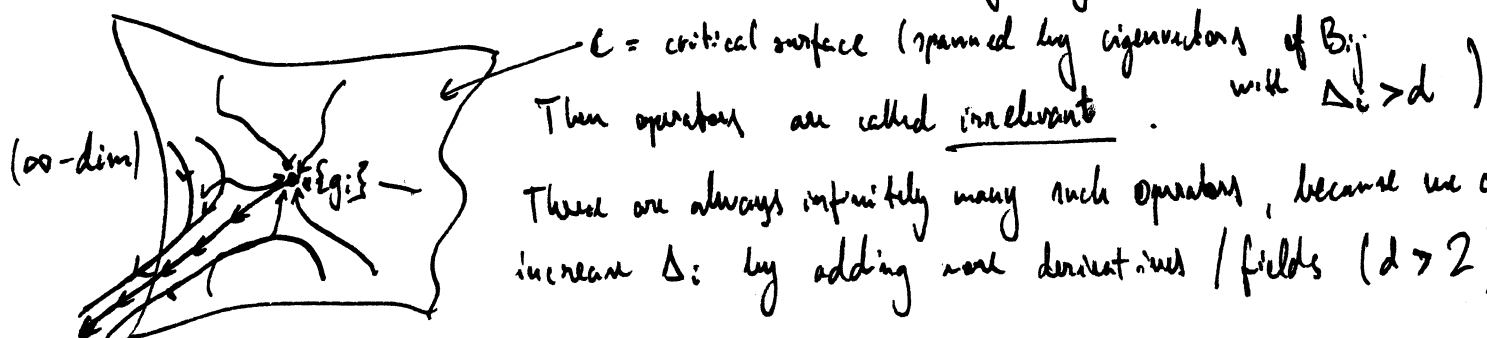 C = critical surface (spanned by eigenvectors of Bij
with Δi > d )
Then operators are called irrelevant .
(∞-dim)
{gi}
There are always infinitely many such operators, because we
increase Δi by adding more derivatives / fields (d > 2